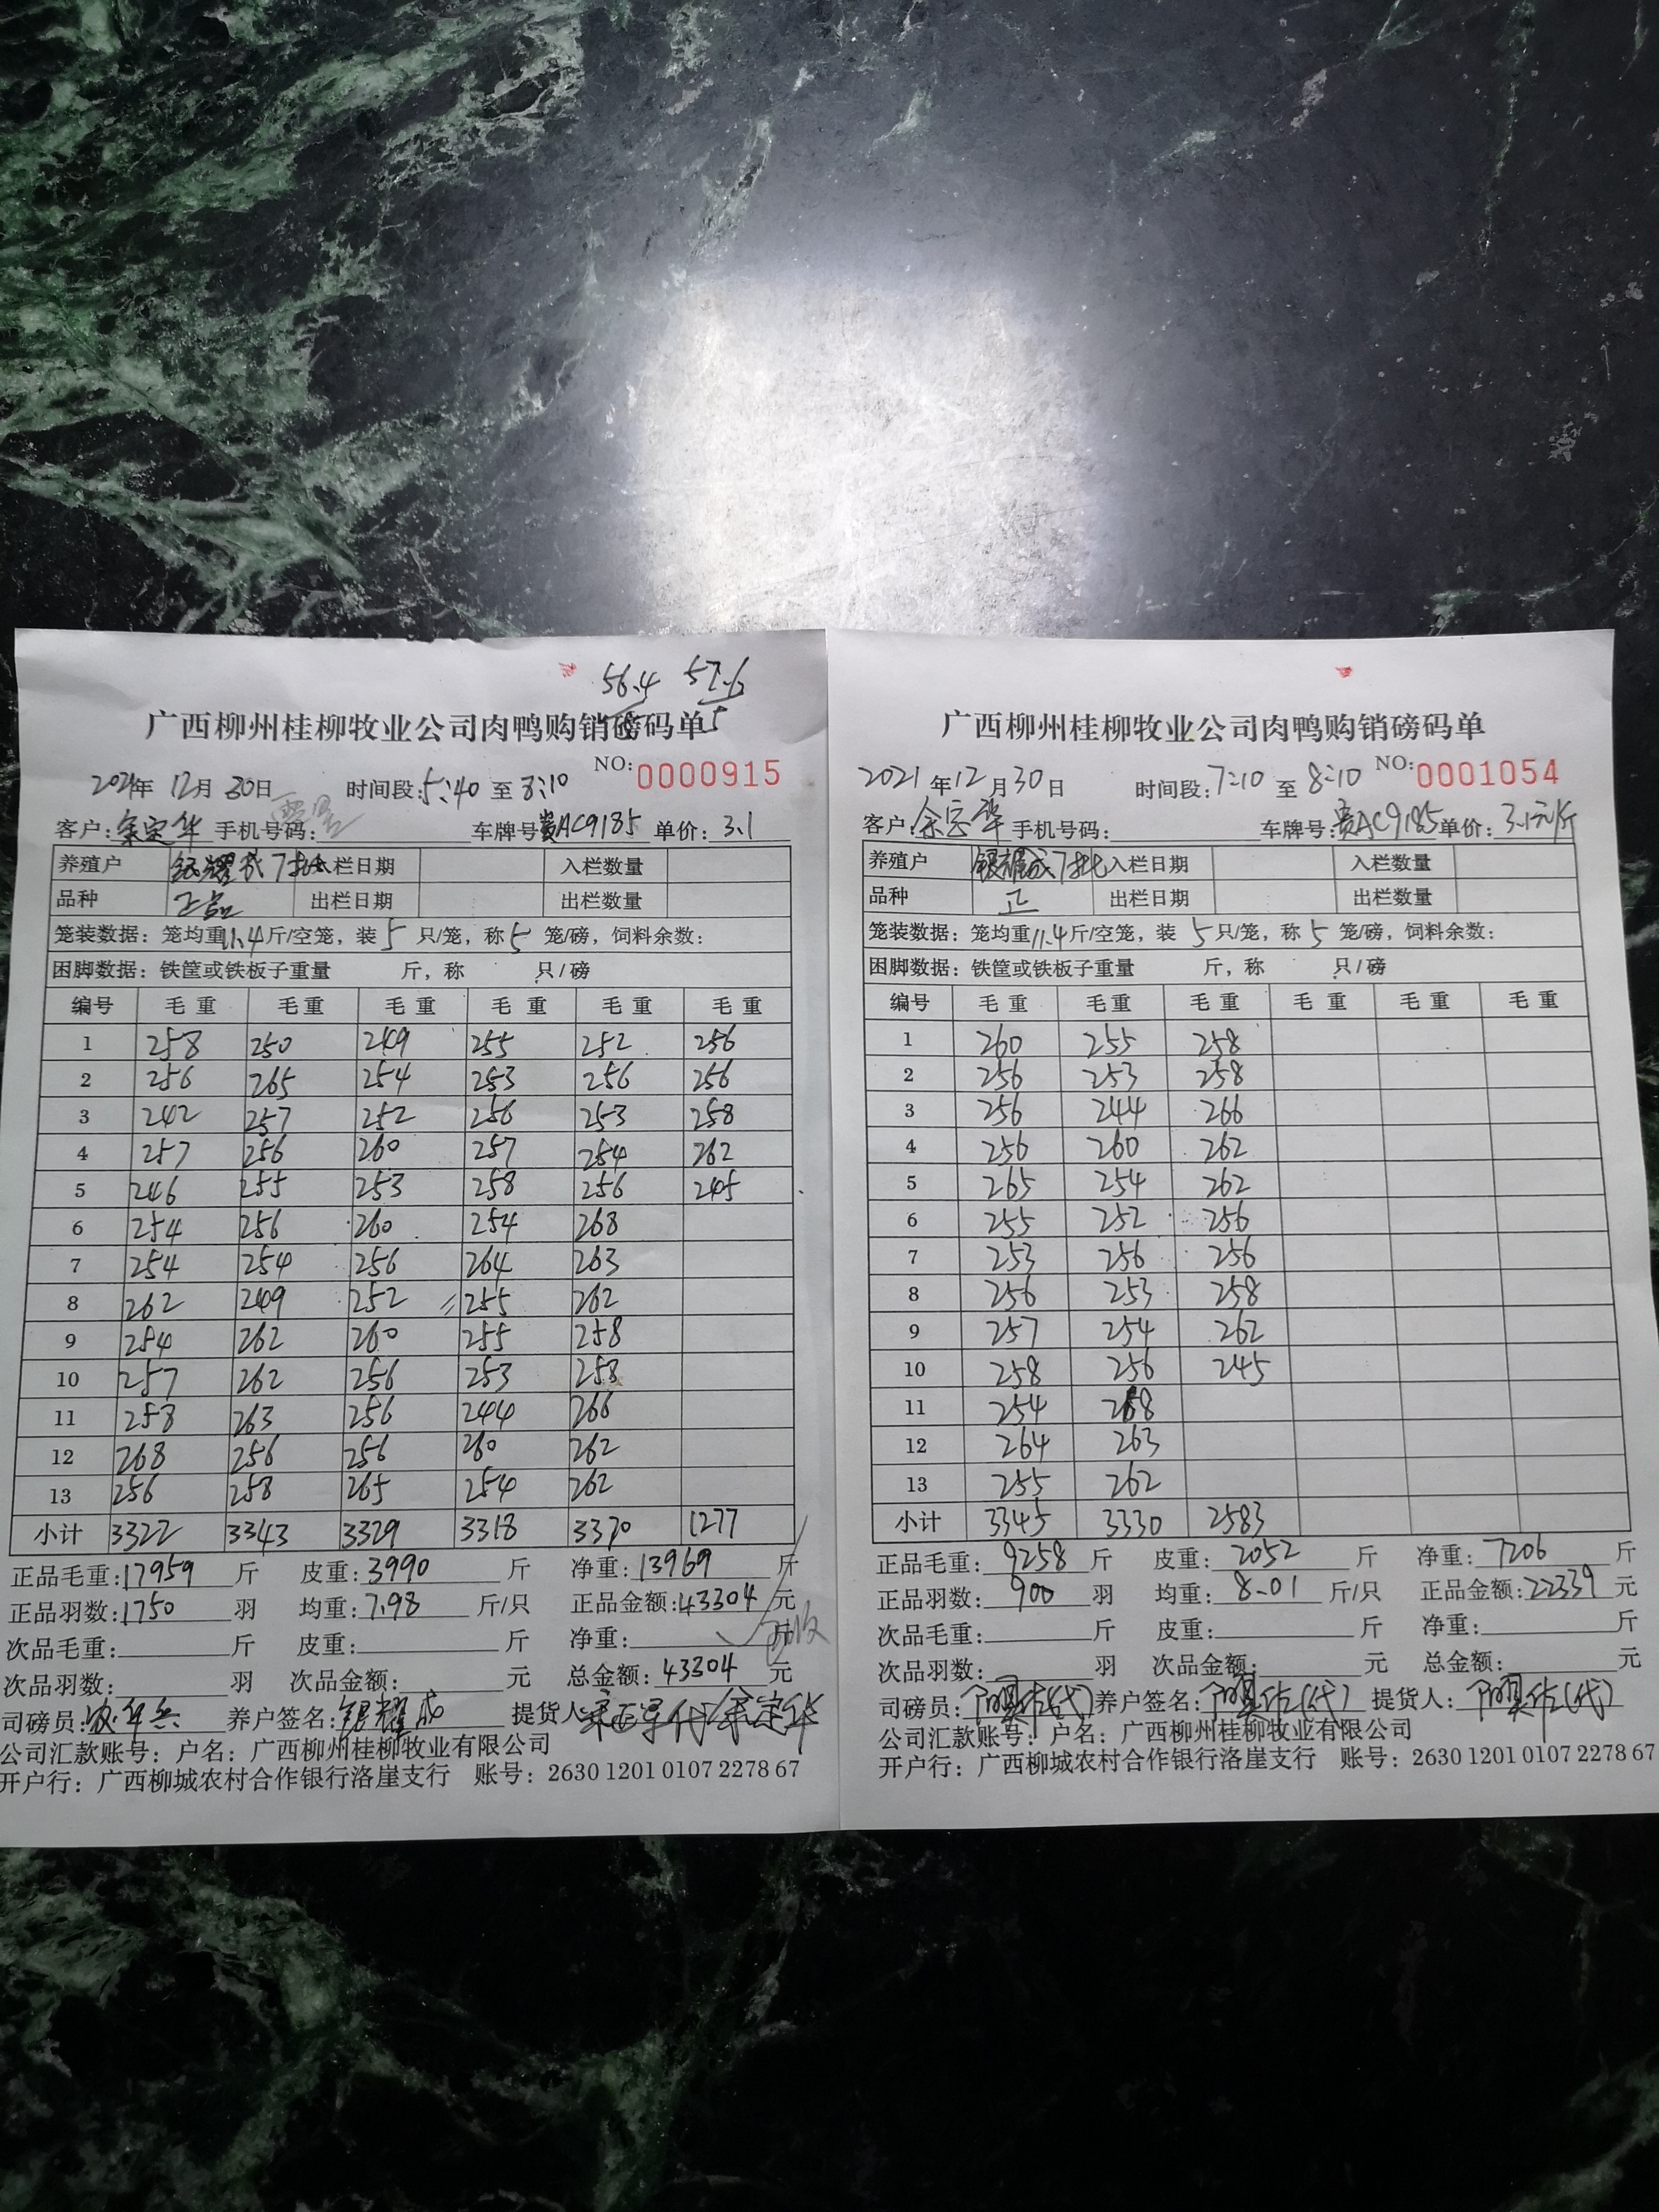 56.4 57.6
5
广西柳州桂柳牧业公司肉鸭购销磅码单
NO:0000915
2021年 12月 30日 时间段:5:40 至 8:10
客户:余定华 手机号码: 车牌号:贵AC9185 单价:3.1
养殖户 银耀成7批 入栏日期 入栏数量
品种 正品 出栏日期 出栏数量
笼装数据:笼均重11.4斤/空笼,装5只/笼,称5笼/磅,饲料余数:
困脚数据:铁筐或铁板子重量 斤,称 只/磅
编号 毛重 毛重 毛重 毛重 毛重 毛重
1 258 250 249 255 252 256
2 256 265 254 253 256 256
3 242 257 252 256 253 258
4 257 256 260 257 254 262
5 246 255 253 258 256 245
6 254 256 260 254 268
7 254 254 256 264 263
8 262 249 252 255 262
9 254 262 260 255 258
10 257 262 256 253 258
11 258 263 256 244 266
12 268 256 256 260 262
13 256 258 265 254 262
小计 3322 3343 3329 3318 3370 1277
正品毛重:17959斤 皮重:3990斤 净重:13969斤
正品羽数:1750羽 均重:7.98斤/只 正品金额:43304元
次品毛重: 斤 皮重: 斤 净重: 斤
次品羽数: 羽 次品金额: 元 总金额:43304元
司磅员: 养户签名:银耀成 提货人: 代余定华
公司汇款账号:户名:广西柳州桂柳牧业有限公司
开户行:广西柳城农村合作银行洛崖支行 账号:2630 1201 0107 2278 67
广西柳州桂柳牧业公司肉鸭购销磅码单
NO:0001054
2021年12月30日 时间段:7:10至8:10
客户:余定华 手机号码: 车牌号:贵AC9185 单价:3.1元/斤
养殖户 银耀成7批 入栏日期 入栏数量
品种 正 出栏日期 出栏数量
笼装数据:笼均重11.4斤/空笼,装5只/笼,称5笼/磅,饲料余数:
困脚数据:铁筐或铁板子重量 斤,称 只/磅
编号 毛重 毛重 毛重 毛重 毛重 毛重
1 260 255 258
2 256 253 258
3 256 244 266
4 256 260 262
5 265 254 262
6 255 252 256
7 253 256 256
8 256 253 258
9 257 254 262
10 258 256 245
11 254 268
12 264 263
13 255 262
小计 3345 3330 2583
正品毛重:9258斤 皮重:2052斤 净重:7206斤
正品羽数:900羽 均重:8.01斤/只 正品金额:22339元
次品毛重: 斤 皮重: 斤 净重: 斤
次品羽数: 羽 次品金额: 元 总金额: 元
司磅员: (代) 养户签名: (代) 提货人: (代)
公司汇款账号:户名:广西柳州桂柳牧业有限公司
开户行:广西柳城农村合作银行洛崖支行 账号:2630 1201 0107 2278 67